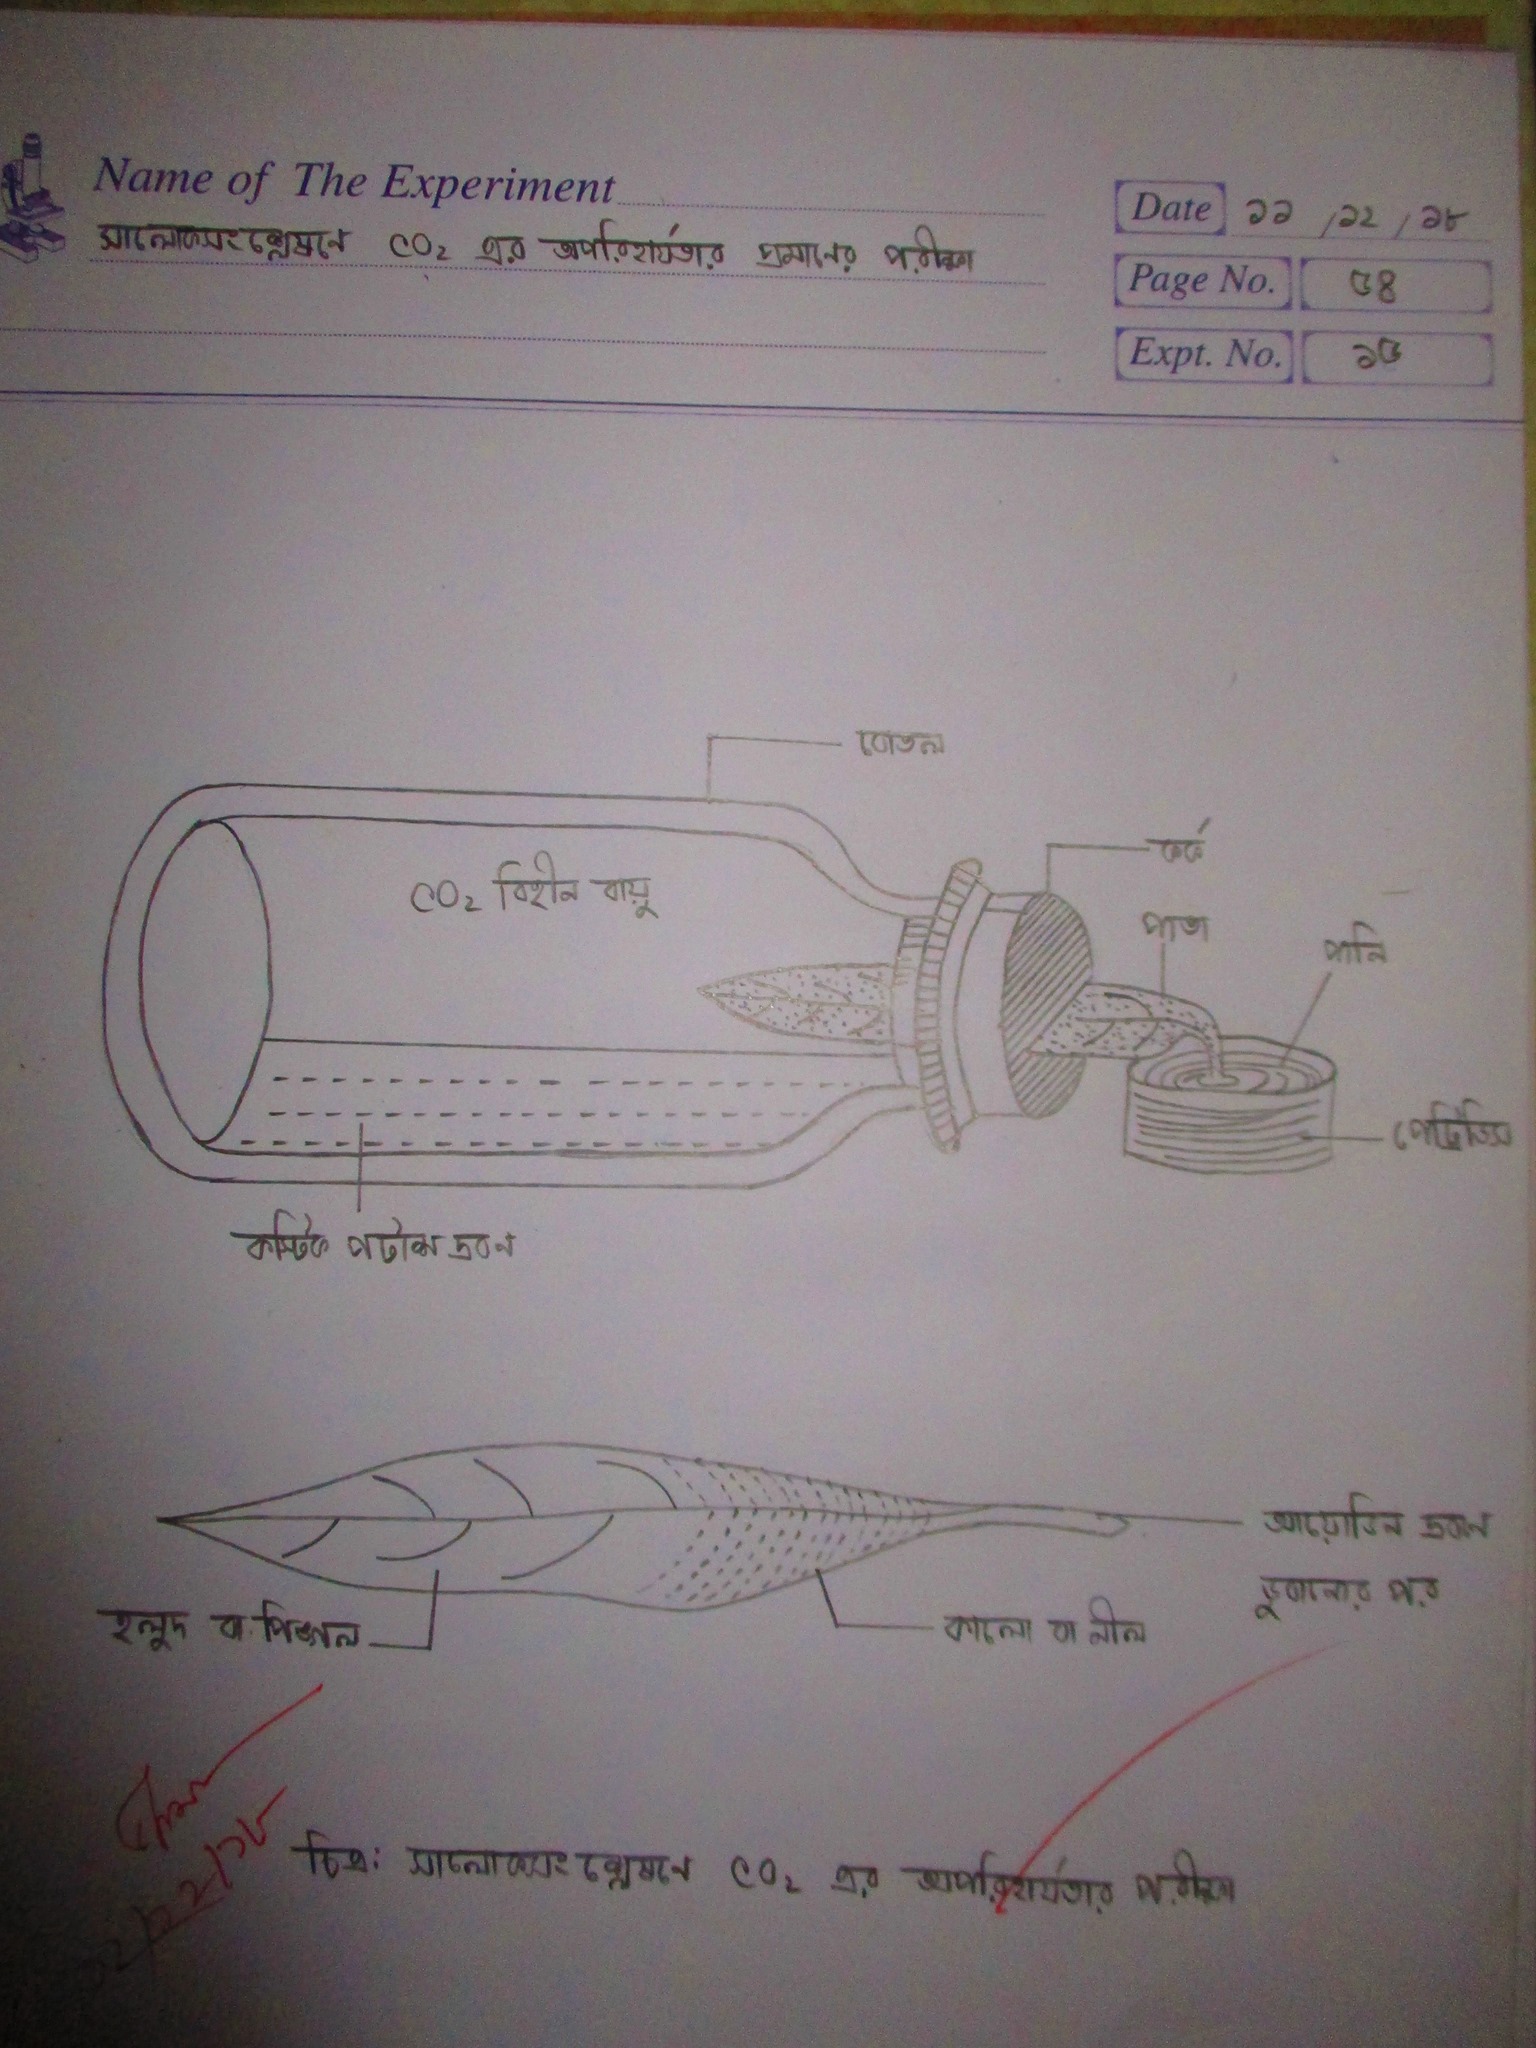 Name of The Experiment
সালোকসংশ্লেষনে CO₂ এর অপরিহার্যতার প্রমানের পরীক্ষা
Date ১১/১২/১৮
Page No. ৫৪
Expt. No. ১৫
বোতল
কর্ক
CO₂ বিহীন বায়ু
পাতা
পানি
পেট্রিডিস
কস্টিক পটাশ দ্রবন
আয়োডিন দ্রবনে
ডুবানোর পর
হলুদ বা পিঙ্গল
কালো বা নীল
চিত্র: সালোকসংশ্লেষনে CO₂ এর অপরিহার্যতার পরীক্ষা